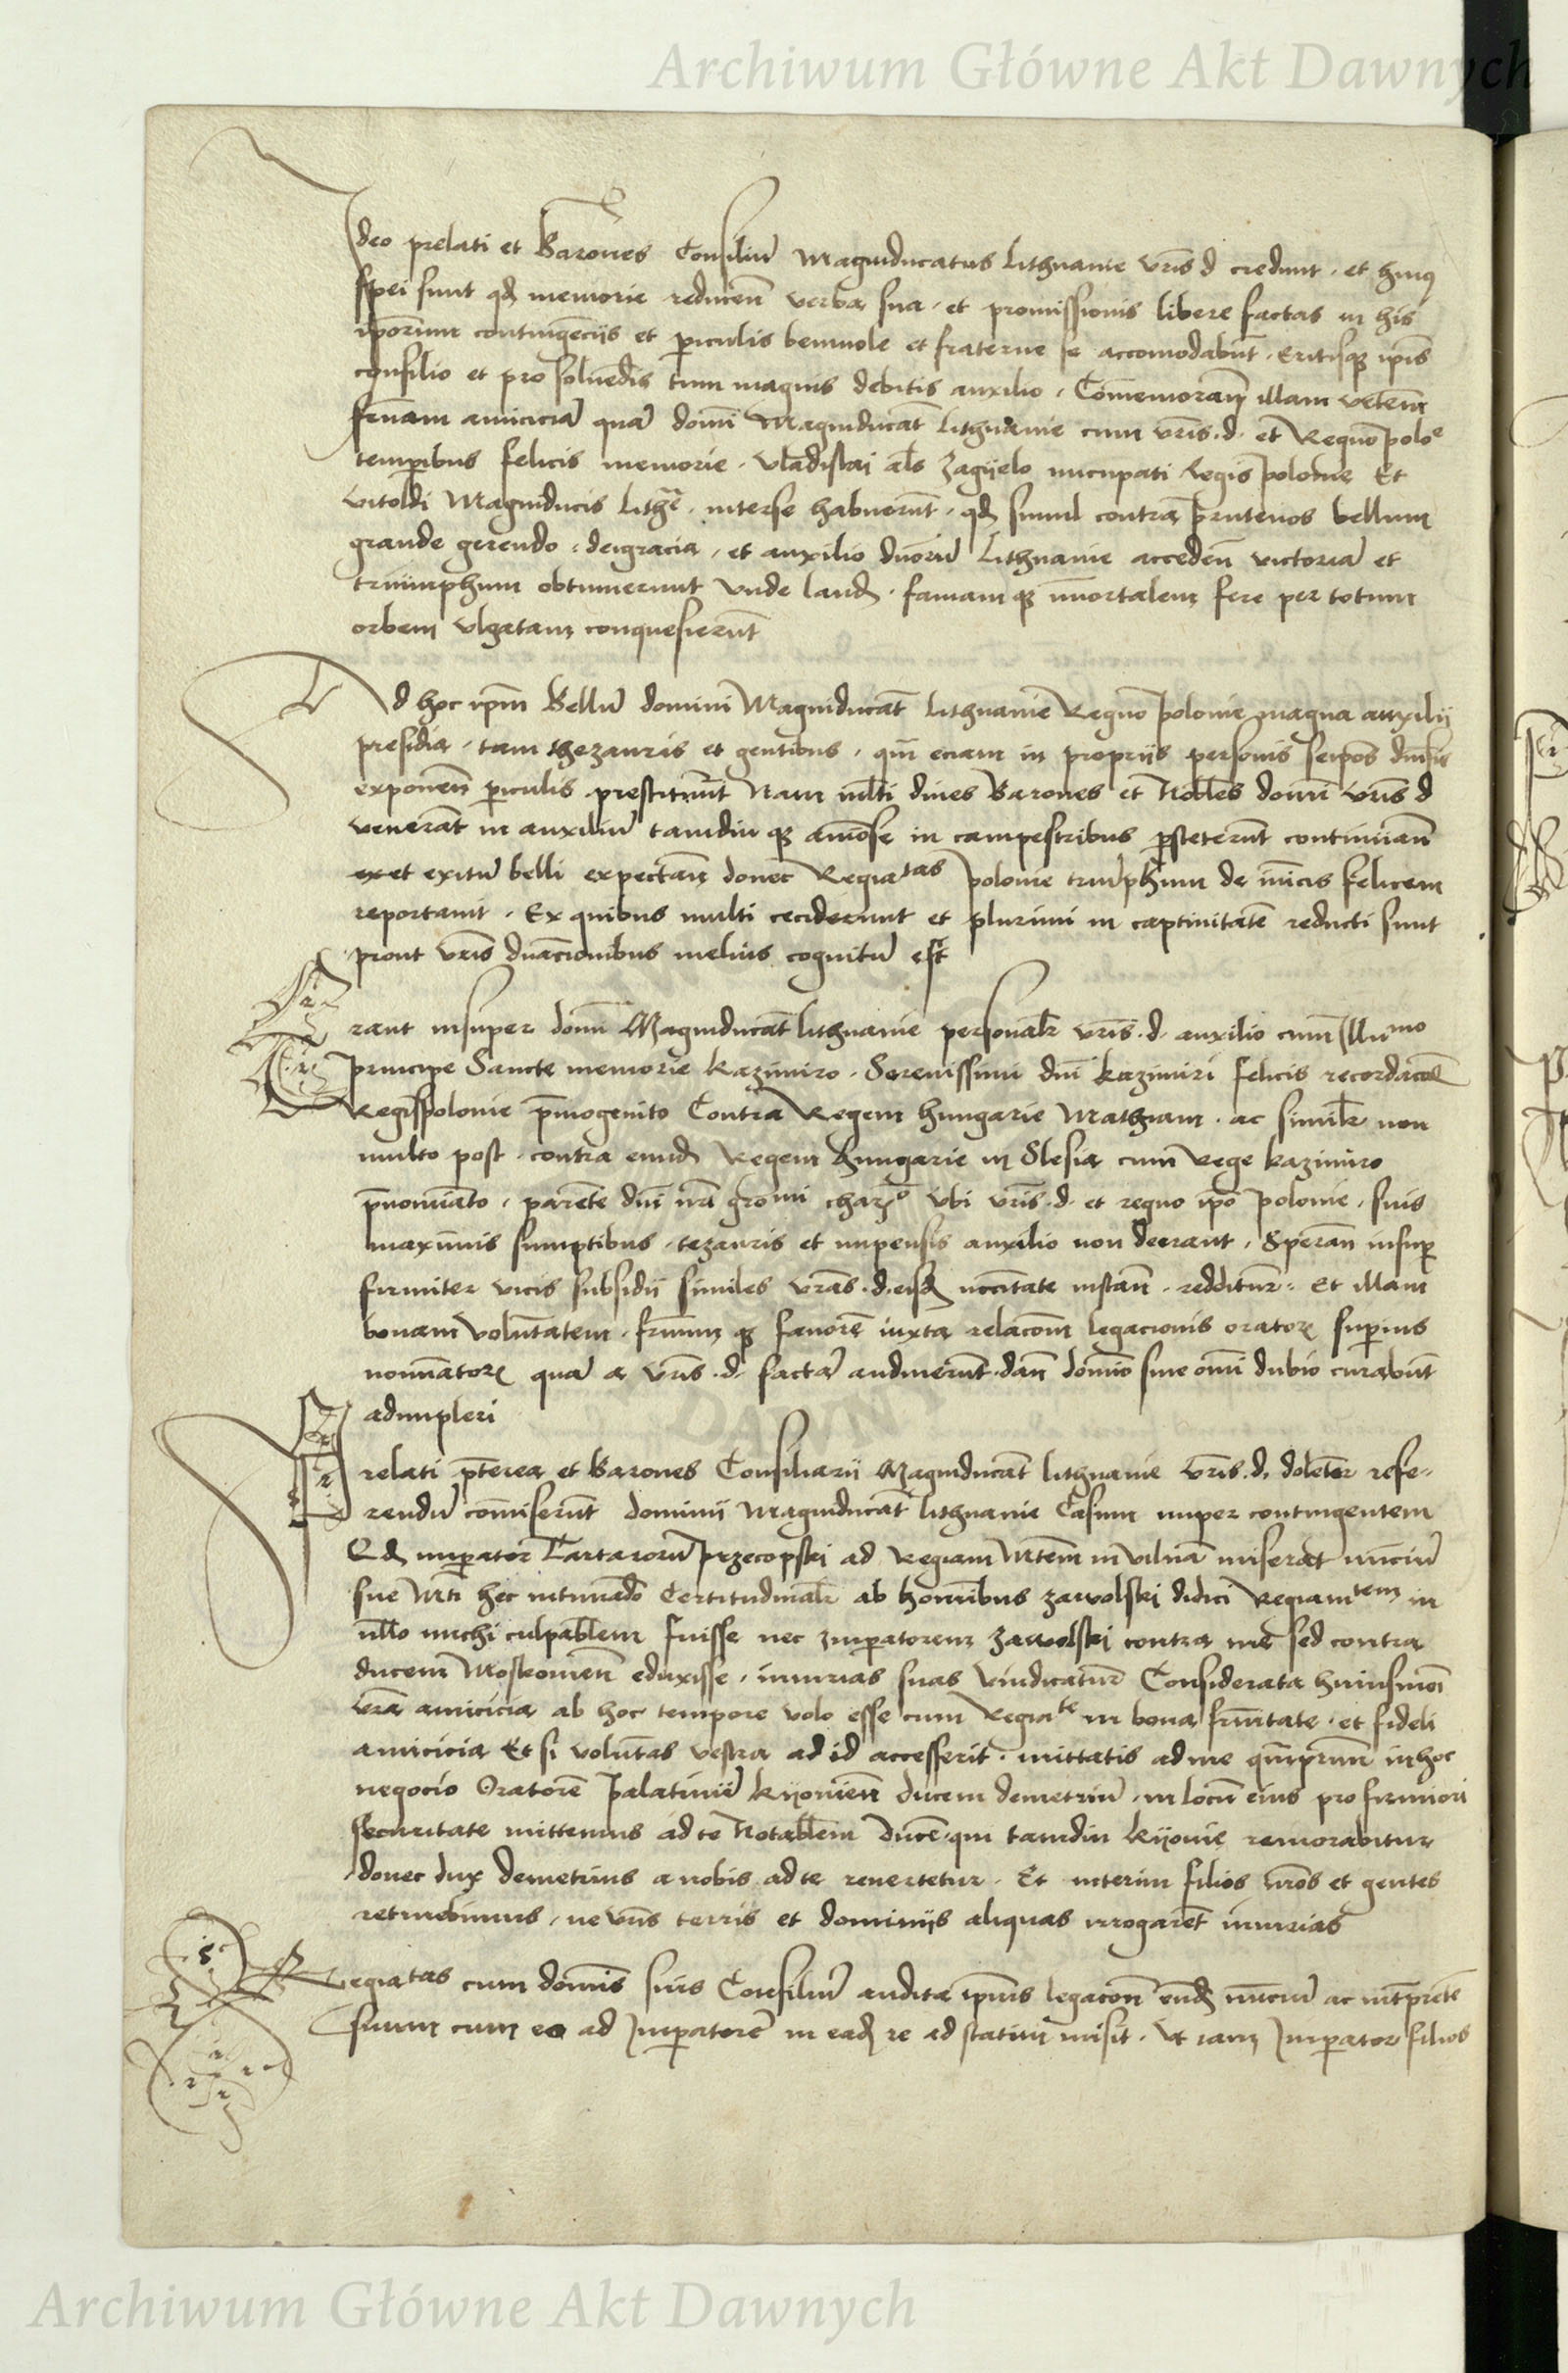 Archiwum Główne Akt Dawnych
Ideo prelati et Barones Consiliu Magniducatus Lithuanie vris d credunt . et huiq
spei sunt qd memorie reducen verba sua . et promissionis libere factas in his
ipsorum contingecijs et piculis beniuole et fraterne se accomodabut . Eritisqz ipis
consilio et pro soluedis tum magnis debitis auxilio . Comemoran illam vetem
fernam amicicia qua domi Magniducat Lithuanie cum vris . d . et Regno polo
temporibus felicis memorie . vladislai als Jagijelo nucupati Regis polonie Et
vitoldi Magniducis Lithe . interse habuerut . qd simul contra prutenos bellum
grande gerendo . deigracia . et auxilio dnoru Lithuanie acceden victoria et
triumphum obtinuerunt vnde laud . famam qz immortalem fere per totum
orbem vlgatam conquesierut
Ad hoc ipm Bellu domini Magniducat Lithuanie Regno polonie magna auxilij
presidia . tam thezauris et gentibus . qm eciam in proprijs personis seipos diusis
exponen piculis prestiterut Nam mlti diues Barones et Nobles domi vris d
venerat in auxiliu tamdiu qz aniose in campestribus psteterut continuan
et exitu belli expectan donec Regiatas polonie triuphum de inicis felicem
reportauit . Ex quibus multi ceciderunt et plurimi in captiuitate reducti sunt
prout vris dnacionibus melius cognitu est
Erant insuper domi Magniducat lithuanie personalr vris . d . auxilio cum Illumo
principe Sancte memorie kazimiro . Serenissimi dni kazimiri felicis recordacoe
Regis polonie pmogenito Contra Regem hungarie Mathiam . ac similr non
multo post . contra eiund Regem hungarie in Slesia cum Rege kazimiro
pnominato . parente dni nri grosi char vbi vris . d . et regno ipo polonie . suis
maximis sumptibus . tezauris et impensis auxilio non deerant . Speran insup
firmiter vicis subsidij similes vras . d . eisd nccitate instan . redditur . Et illam
bonam voluntatem . frnum qz fauore iuxta relacom legacionis orator superius
nominator qua a vris . d . facta audiuerut . dan domio sine omi dubio curabut
adimpleri
Prelati pterea et Barones Consiliarij Magniducat lithuanie vris . d . dolenter refe-
rendu comiserut dominij Magniducat lithuanie Casum nuper contingentem
Qd imperator Tartaroru przecopski ad Regiam Mtem in vilna miserat nunciu
sue Mti hec intimado Certitudinalr ab hominibus zawolski didici Regiamtem in
nullo michi culpablem fuisse nec Imperatorem zawolski contra me sed contra
ducem Moskouien eduxisse . iniurias suas vindicatur Considerata huiusmoi
vra amicicia ab hoc tempore volo esse cum Regiate in bona frnitate . et fideli
amicicia Et si voluntas vestra ad id accesserit . mittatis ad me qmprimu in hoc
negocio Oratore palatinu kijouien ducem demetriu . in locu eius pro firmiori
securitate mittemus ad te Notablem duce . qui tamdiu kijouie remorabitur
donec dux demetrius a nobis ad te reuertetur . Et interim filios nros et gentes
retinebimus . ne vris terris et dominijs aliquas irrogaret iniurias
Regiatas cum domis suis Consiliu audita ipius legacon eund nunciu ac intprete
suum cum eo ad Imperatore in ead re ad statim misit . Vt iam Imperator filios
Archiwum Główne Akt Dawnych